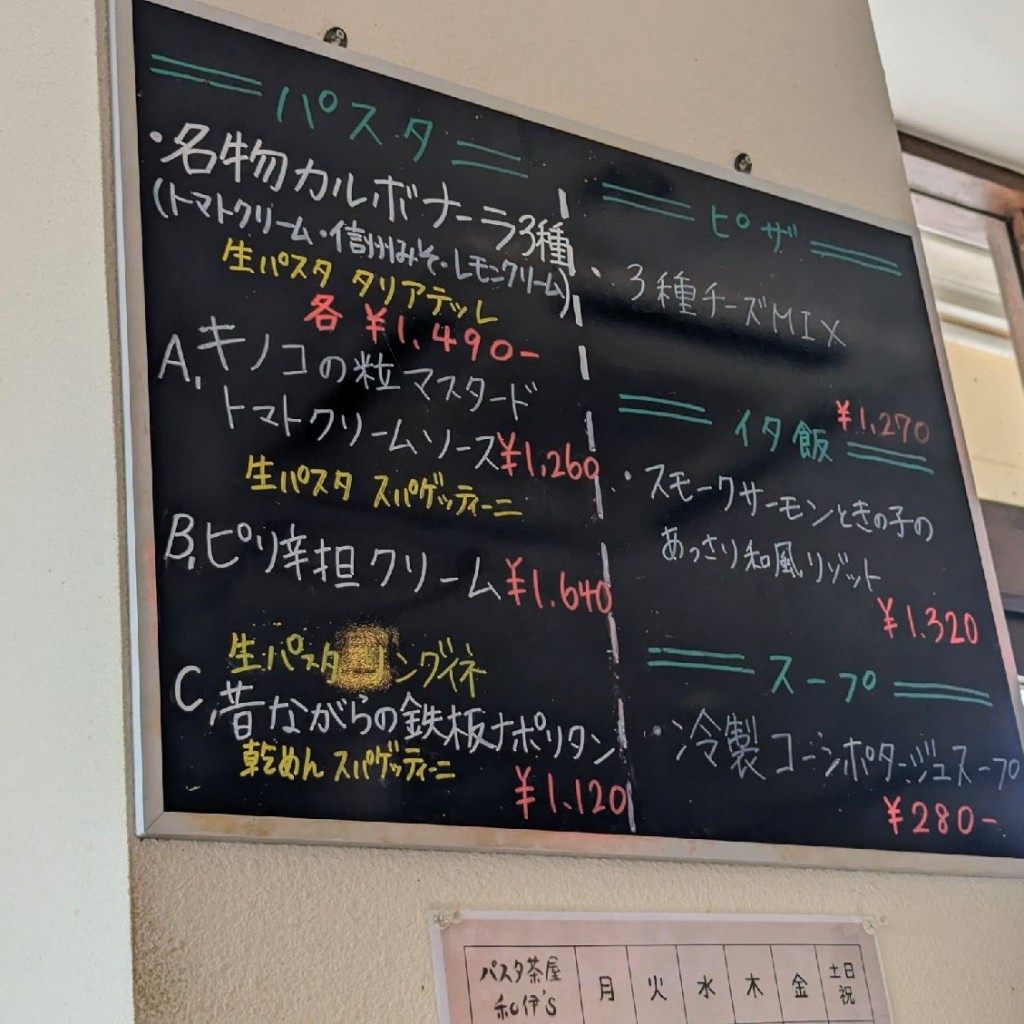 パスタ
・名物カルボナーラ3種
(トマトクリーム・信州みそ・レモンクリーム)
生パスタ タリアテッレ
各 ¥1.490-
A.キノコの粒マスタード
トマトクリームソース¥1,260
生パスタ スパゲッティーニ
B.ピリ辛担クリーム¥1.640
生パスタ リングイネ
C.昔ながらの鉄板ナポリタン
乾めん スパゲッティーニ
¥1.120
ピザ
・3種チーズMIX
¥1,270
イタ飯
・スモークサーモンときの子の
あっさり和風リゾット
¥1.320
スープ
・冷製コーンポタージュスープ
¥280-
パスタ茶屋
和伊's
月 火 水 木 金 土日祝